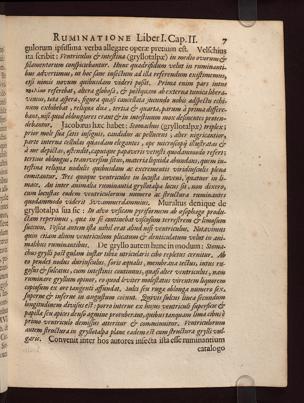 RUMINATIONE Liber I. Cap. II. 7
gulorum ipsissima verba allegare operæ pretium est. Velschius
ita scribit: Ventriculus & intestina (gryllotalpæ) in medio ovorum &
filamentorum conspiciebantur. Hunc quadrifidum velut in ruminanti-
bus advertimus, ut hoc sane insectum ad ista referendum existimemus,
etsi nimis novum quibusdam videri possit. Prima enim pars intus
referebat, altera globosa, & postquam ab externa tunica libera-
vimus, tota aspera, figura quasi cancellata jucundo nobis adspectu echi-
num exhibebat, reliqua duæ, tertia & quarta, parum à prima differe-
bant, nisi quod oblongiores erant & in intestinum mox desinentes proten-
debantur. Jacobæus hæc habet: Stomachus (gryllotalpæ) triplex;
prior mole sua satis insignis, candidus ac pellucens, aber nigricantior,
parte interna cellulas quasdam elegantes, ope microscopij illustratas &
à me depictas, ostendit, eximque paparæ veteris quodammodo refert;
tertius oblongus, transversim situs, materia liquida abundans, quem in-
testina reliqua nodulis quibusdam ac excrementis viridiusculis plena
comitantur. Tres quoque ventriculos in locusta inveni, quatuor in li-
max. An inter animalia ruminantia gryllotalpæ locus sit, non dixero,
cum locustas eadem ventriculorum numero & structura ruminantes
quodammodo viderit Swammerdammius. Muraltus denique de
gryllotalpa ita sic: In alvo vesicam pyriformem ab œsophago produ-
ctam reperimus, quæ
succum. Positus autem ista nihil erat aliud nisi ventriculus. Notavimus
quin etiam alium ventriculum plicatum & denticulatum velut in ani-
malibus ruminantibus. De gryllo autem hunc in modum: Stoma-
chus grylli pacti gulam instar tibia utricularis cibo repletus cernitur. Ab
eo pendet nodus duriusculus, foris æqualis, membrana tectus, intus ru-
gosus & sulcatus, cum intestinis continuus, quasi alter ventriculus, nam
ruminare gryllum opinor, eo quod leviter molestatus virentem liquorem
copiosum ex ore tangenti affundat,
superne & inferne in angustum coeunt.
longitudinem divisus est: porro interna ex hujus ventriculi superficie &
papilla seu apices denso agmine protuberant, quibus tanquam lima cibus è
primo ventriculo demissus atteritur & comminuitur. Ventriculorum
autem structura in gryllotalpa plane eadem est cum structura grylli vul-
garis. Convenit inter hos autores insecta ista esse ruminantium
catalogo